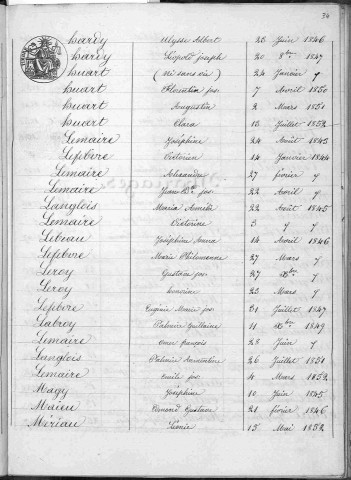 34
hardy Ulysse Albert 25 Juin 1846
hardy Léopold Joseph 20 8bre 1847
huart (né sans vie) 24 Janvier 〃
huart Florentin Jos. 7 Avril 1850
huart Augustin 2 Mars 1851
huart Clara 13 Juillet 1852
Lemaire Joséphine 24 Août 1843
Lefebvre Victorien 14 Janvier 1844
Lemaire Alexandre 27 février 〃
Lemaire Jean Bte Jos. 22 Avril 〃
Langlois Maria Amélie 22 Août 1845
Lemaire Victorine 3 〃 〃
Lebrun Joséphine 14 Avril 1846
Lefebvre Marie Philomène 27 Mars 〃
Leroy Gustave Jos. 27 Xbre 〃
Leroy 23 Mars 〃
Lefebvre Eugénie Marie Jos. 31 Juillet 1847
Labroy Palmire Guillaine 11 Xbre 1849
Lemaire françois 28 Juin 〃
Langlois Palmire 26 Juillet 1851
Lemaire Emile Jos. 4 Mars 1852
Magy Joséphine 10 Juin 1845
Maieu Edmond Gustave 21 février 1846
Mériau Léonie 15 Mai 1852